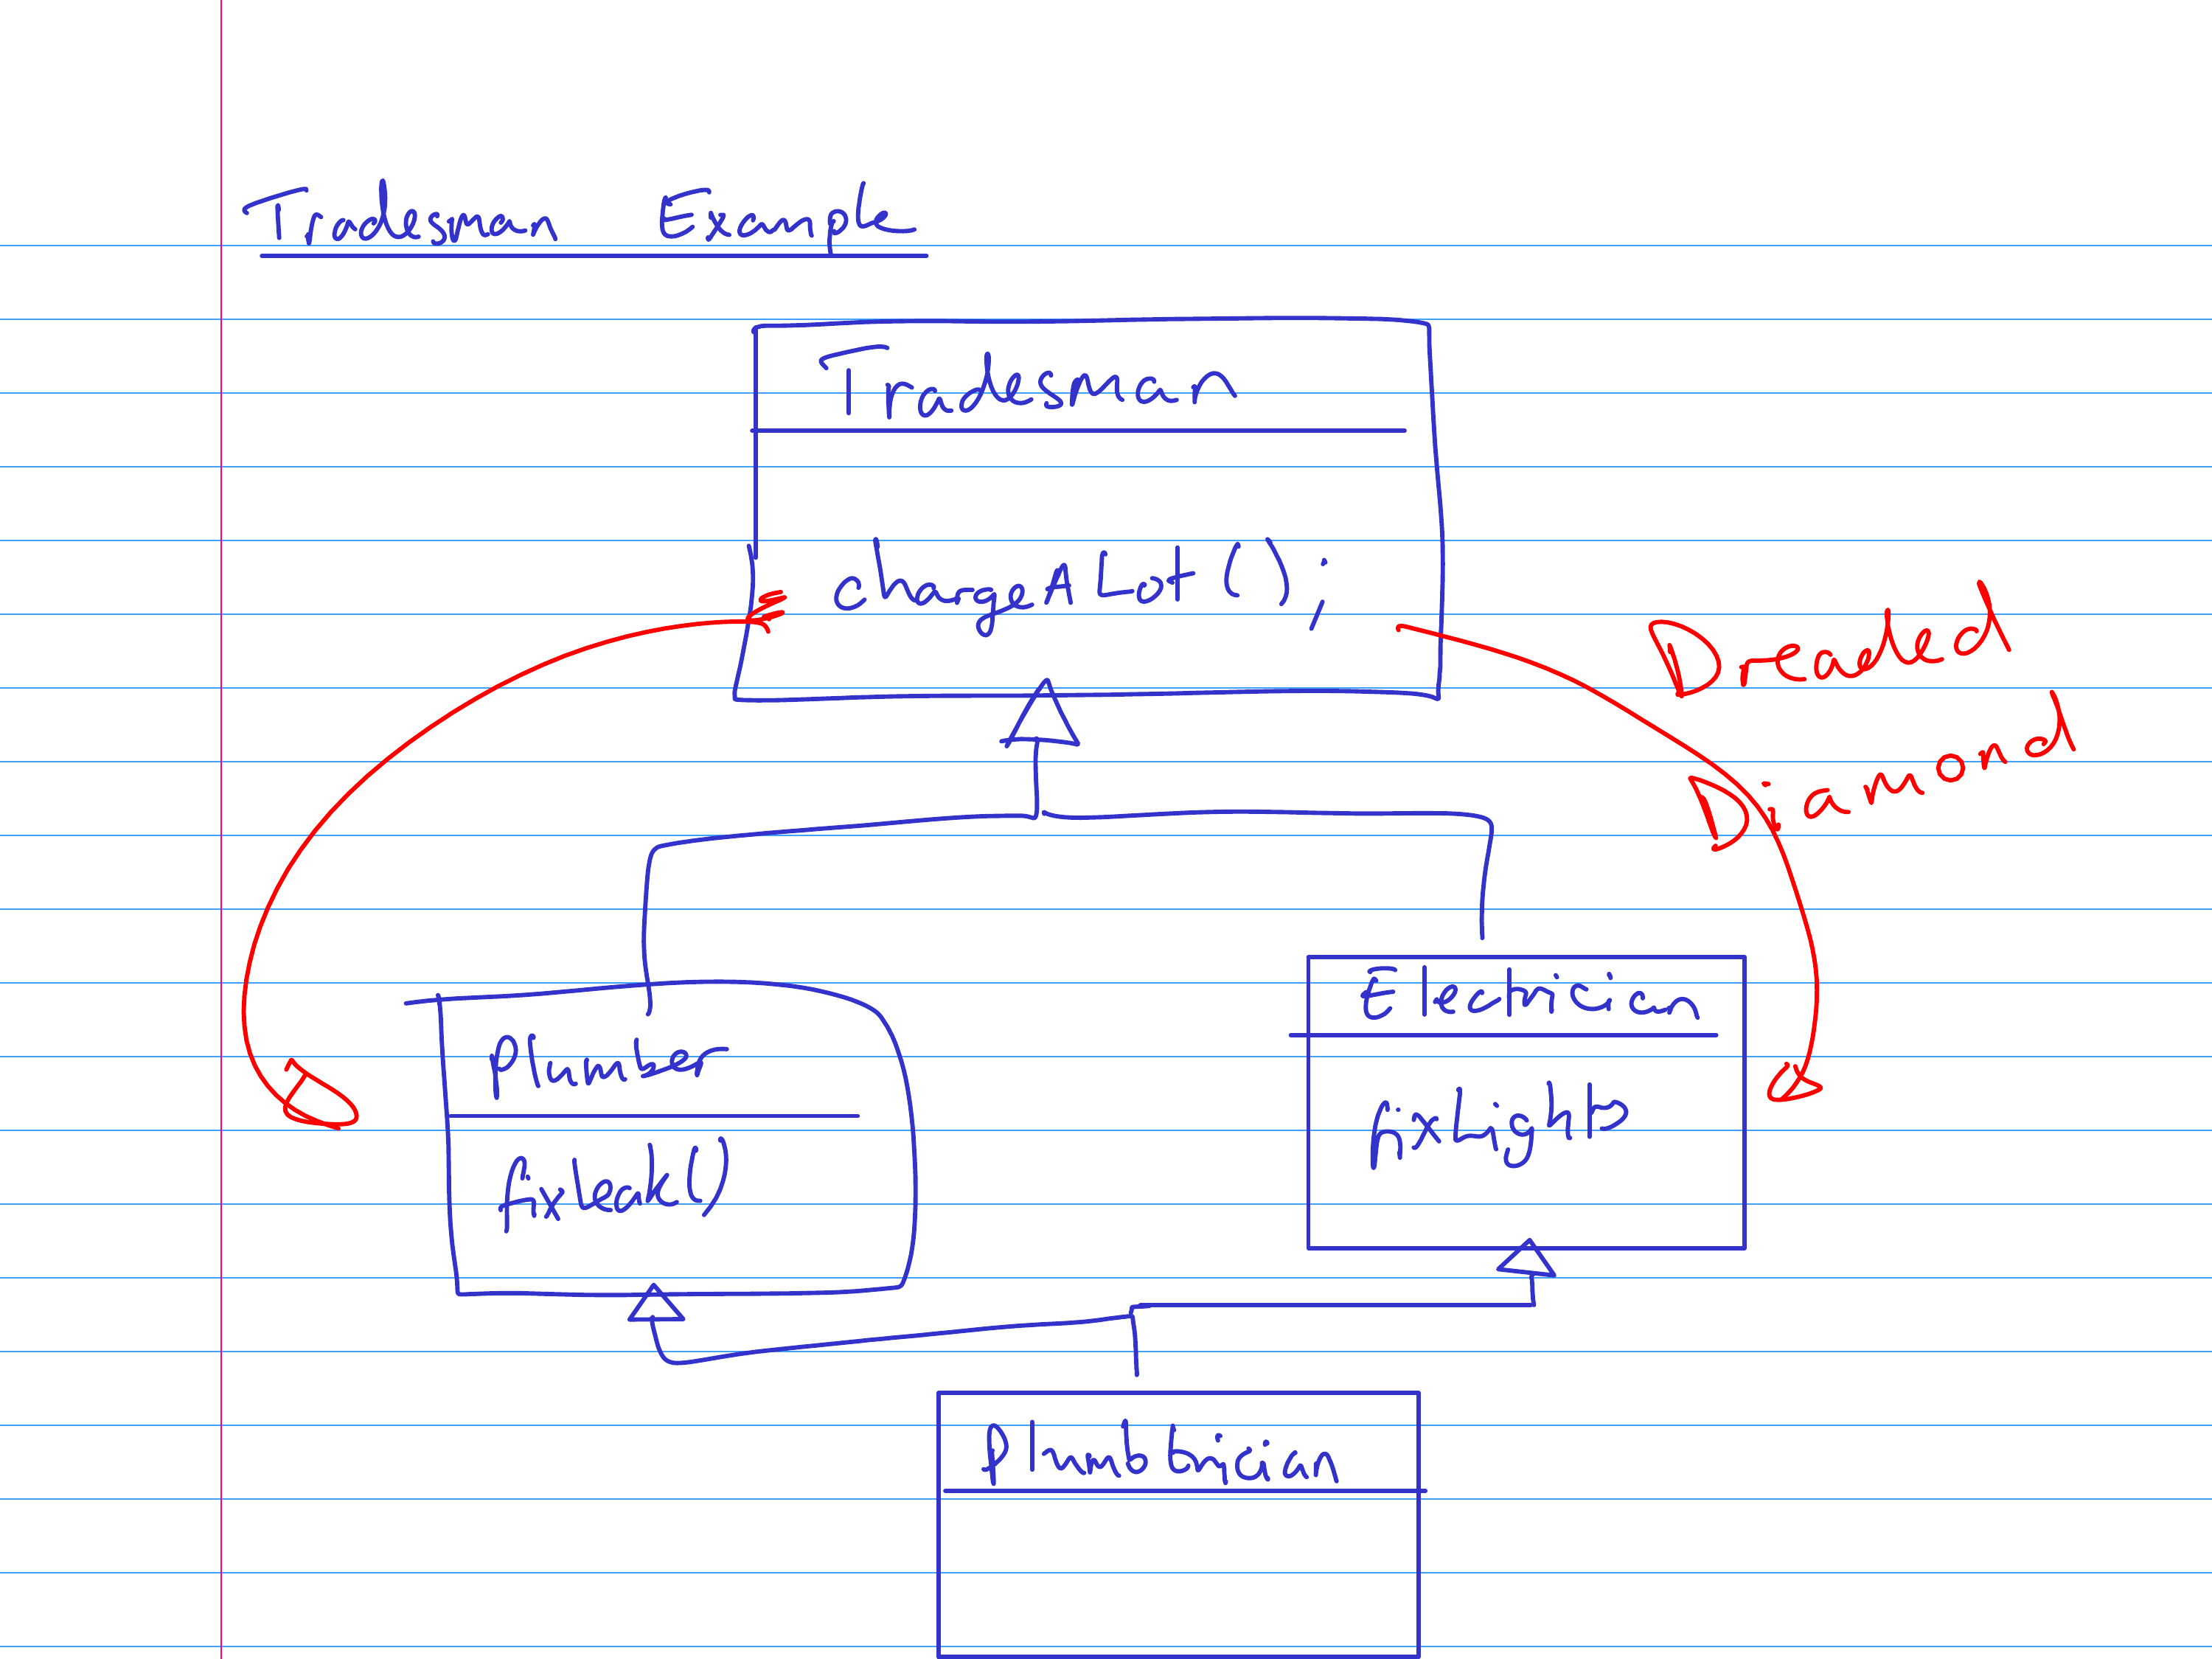 Tradesman Example
Tradesman
chargeALot();
Dreaded
Diamond
Plumber
fixLeak()
Electrician
fixLight()
Plumbtrician